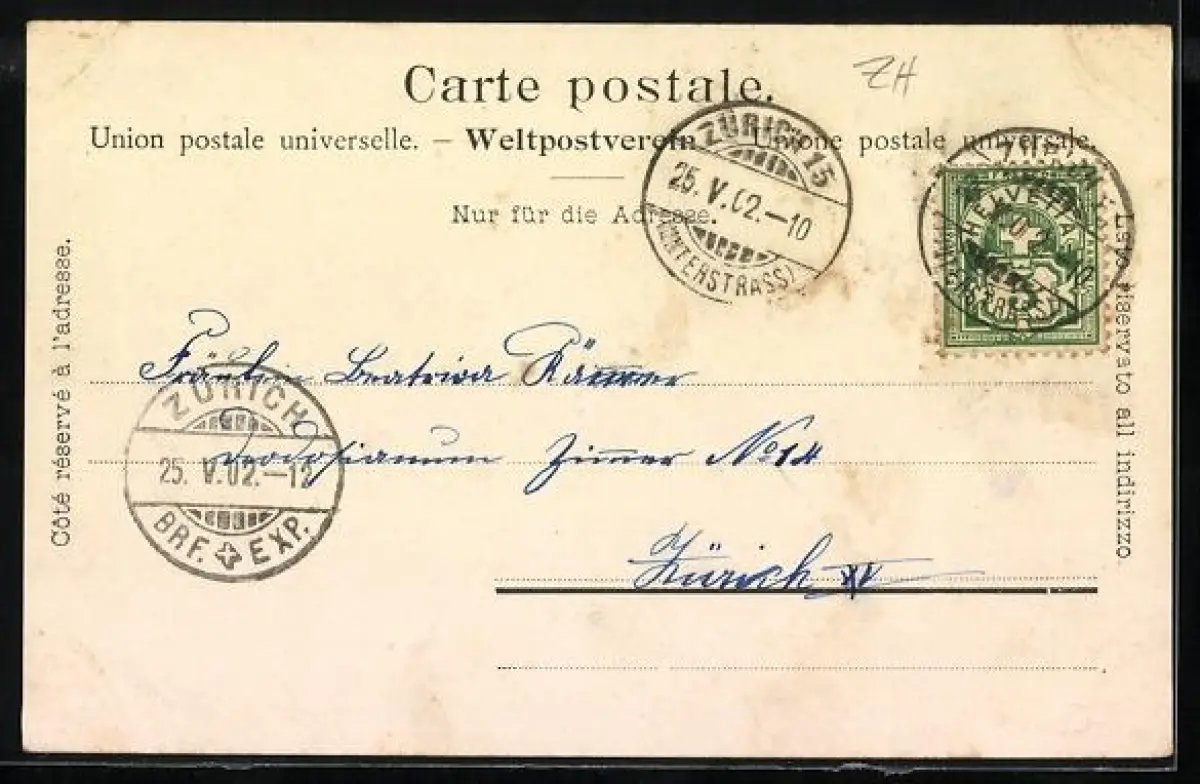 ZH
Carte postale.
Union postale universelle. – Weltpostverein – Unione postale universale.
Nur für die Adresse.
ZÜRICH 15
25. V. 02. – 10
(UNTERSTRASS)
ZÜRICH
10
HELVETIA
5
Côté réservé à l'adresse.
Lato riservato all indirizzo.
Fräulein
Zimmer No 14
Zürich
ZÜRICH
25. V. 02. – 12
BRF. EXP.